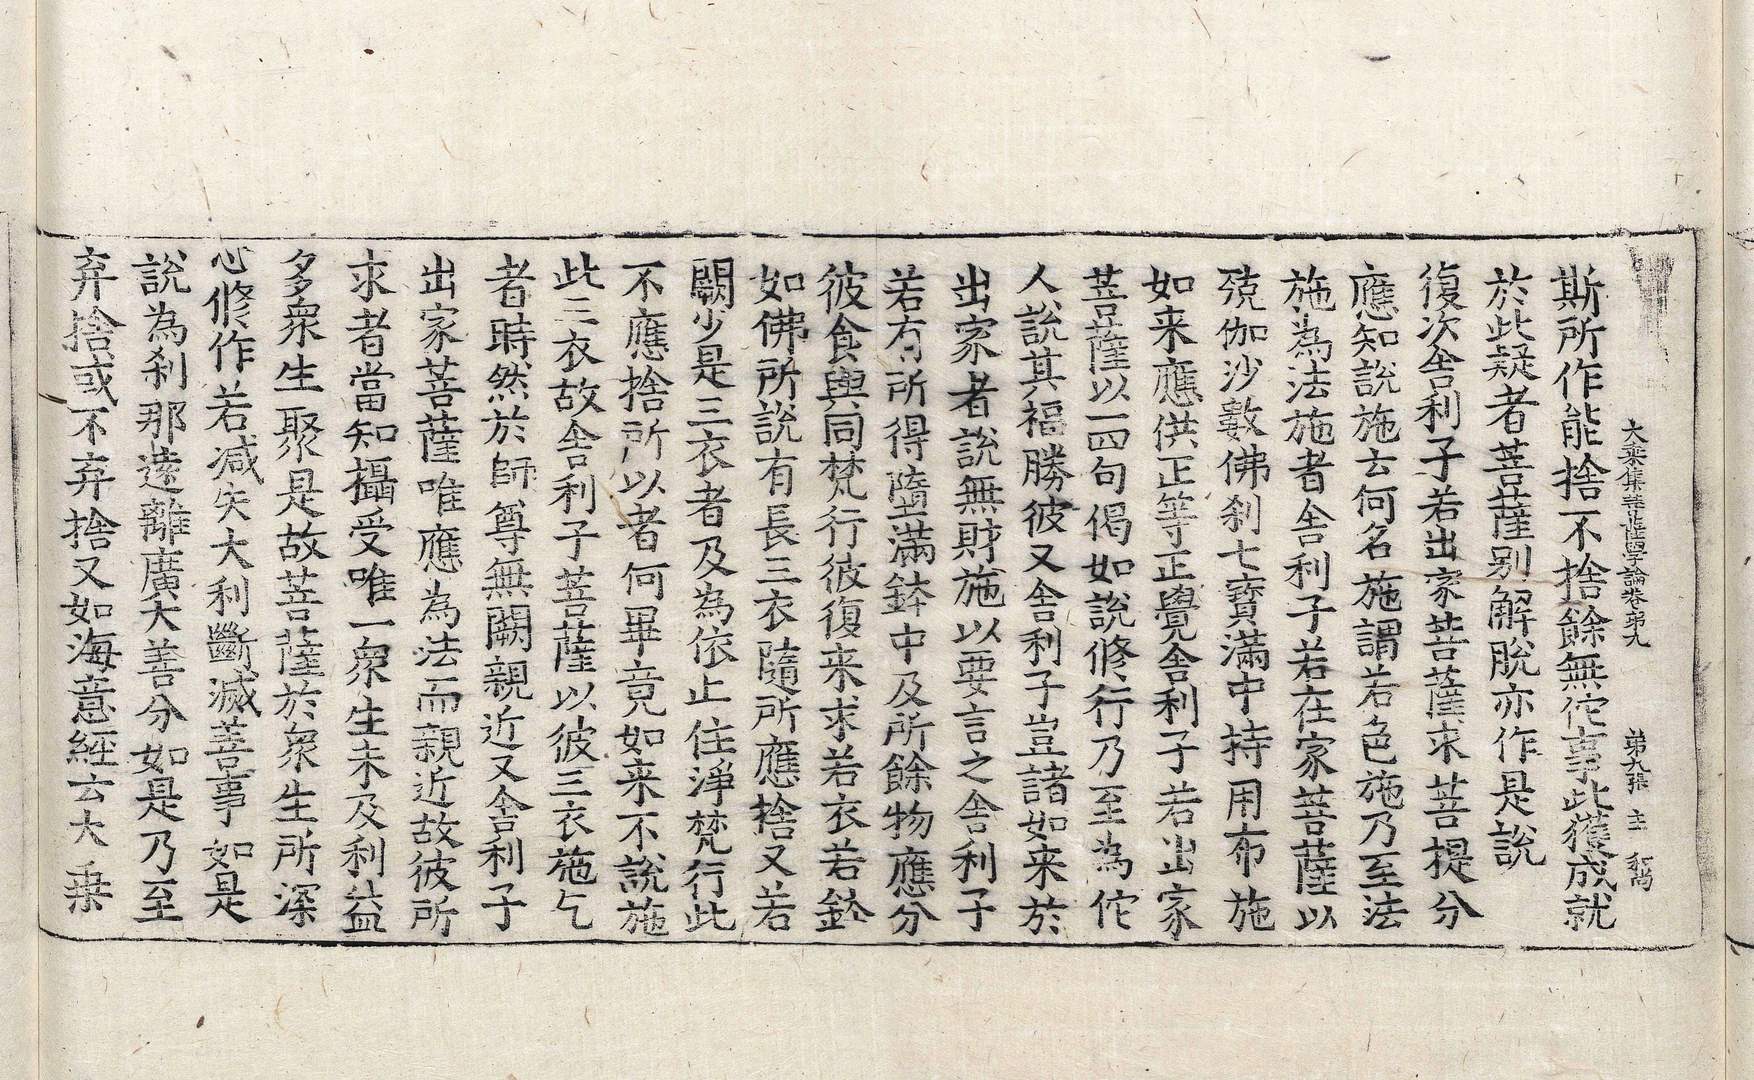 大乘集菩薩學論卷第九 第九張 主
斯所作能捨不捨餘無佗事此獲成就
於此疑者菩薩別解脫亦作是說
復次舍利子若出家菩薩求菩提分
應知說施云何名施謂若色施乃至法
施為法施者舍利子若在家菩薩以
殑伽沙數佛刹七寶滿中持用布施
如来應供正等正覺舍利子若出家
菩薩以一四句偈如說修行乃至為佗
人說其福勝彼又舍利子豈諸如来於
出家者說無財施以要言之舍利子
若有所得墮滿鉢中及所餘物應分
彼食與同梵行彼復来求若衣若鉢
如佛所說有長三衣隨所應捨又若
闕少是三衣者及為依止住淨梵行此
不應捨所以者何畢竟如来不說施
此三衣故舍利子菩薩以彼三衣施乞
者時然於師尊無闕親近又舍利子
出家菩薩唯應為法而親近故彼所
求者當知攝受唯一衆生未及利益
多衆生聚是故菩薩於衆生所深
心修作若减失大利斷滅善事如是
說為刹那遠離廣大善分如是乃至
弃捨或不弃捨又如海意經云大乗